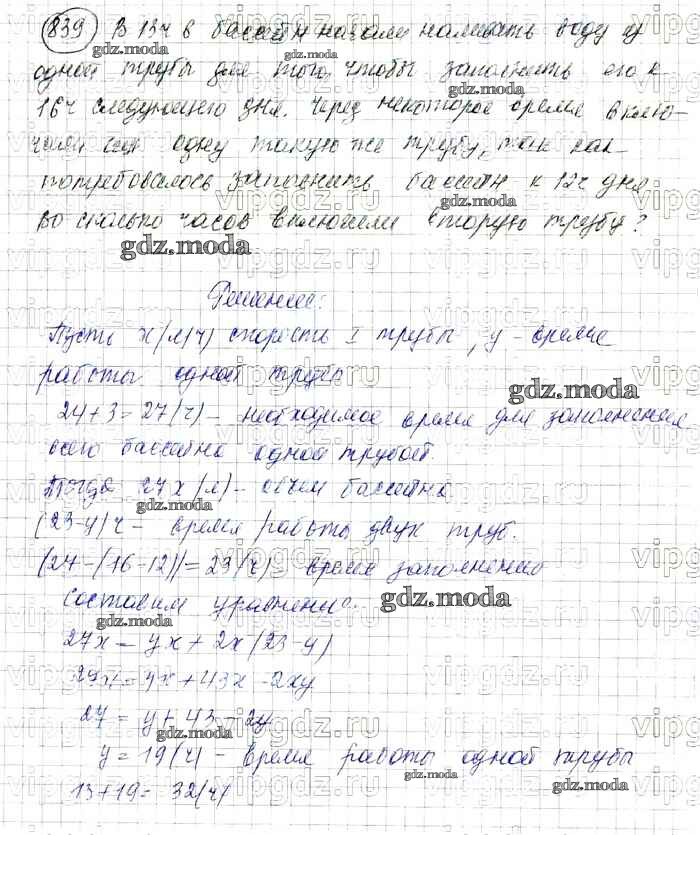 839 В 13ч в бассейн начали наливать воду из
одной трубы для того, чтобы заполнить его к
16ч следующего дня. Через некоторое время вклю-
чили еще одну такую же трубу, так как
потребовалось заполнить бассейн к 12ч дня
Во сколько часов включили вторую трубу?
Решение:
Пусть x(л/ч) скорость I трубы, y - время
работы одной трубы
24+3=27(ч) - необходимое время для заполнения
всего бассейна одной трубой.
Тогда 27x(л) - объем бассейна
(23-y)ч - время работы двух труб.
(27-(16-12))=23(ч) время заполнения
Составим уравнение.
27x = yx + 2x(23-y)
27x = yx + 43x - 2xy
27 = y + 43 - 2y
y = 19(ч) - время работы одной трубы
13+19= 32(ч)
gdz.moda
vipgdz.ru